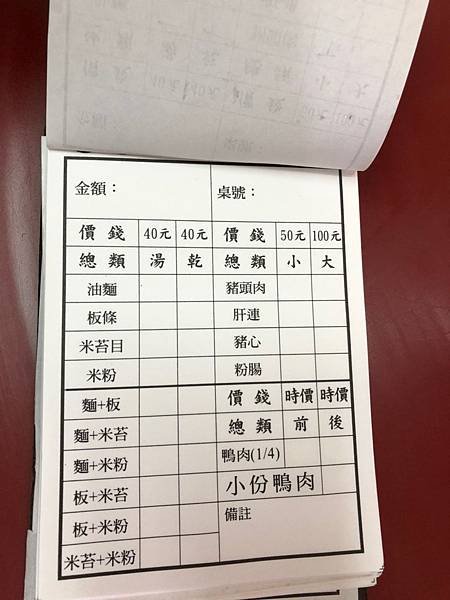 金額： 桌號：
價錢 40元 40元 價錢 50元 100元
總類 湯 乾 總類 小 大
油麵 豬頭肉
板條 肝連
米苔目 豬心
米粉 粉腸
麵+板 價錢 時價 時價
麵+米苔 總類 前 後
麵+米粉 鴨肉(1/4)
板+米苔 小份鴨肉
板+米粉 備註
米苔+米粉